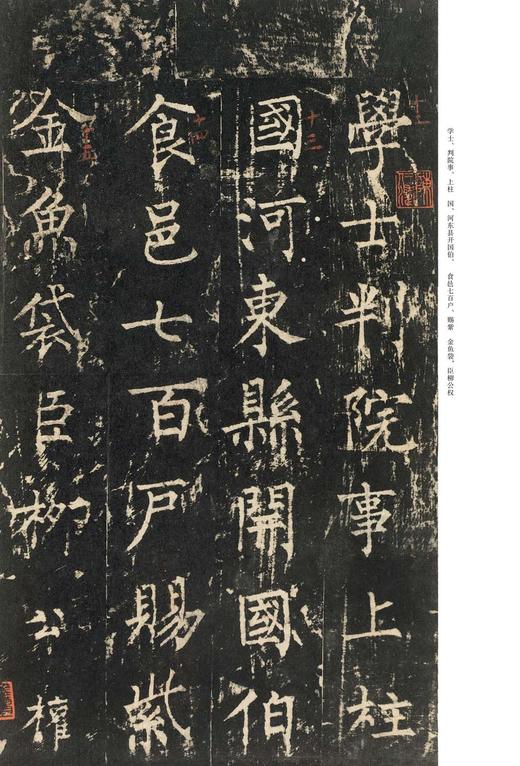 學士判院事上柱
國河東縣開國伯
食邑七百戶賜紫
金魚袋臣柳公權
十二
十三
十四
十五
学士、判院事、上柱 国、河东县开国伯、 食邑七百户、赐紫 金鱼袋、臣柳公权